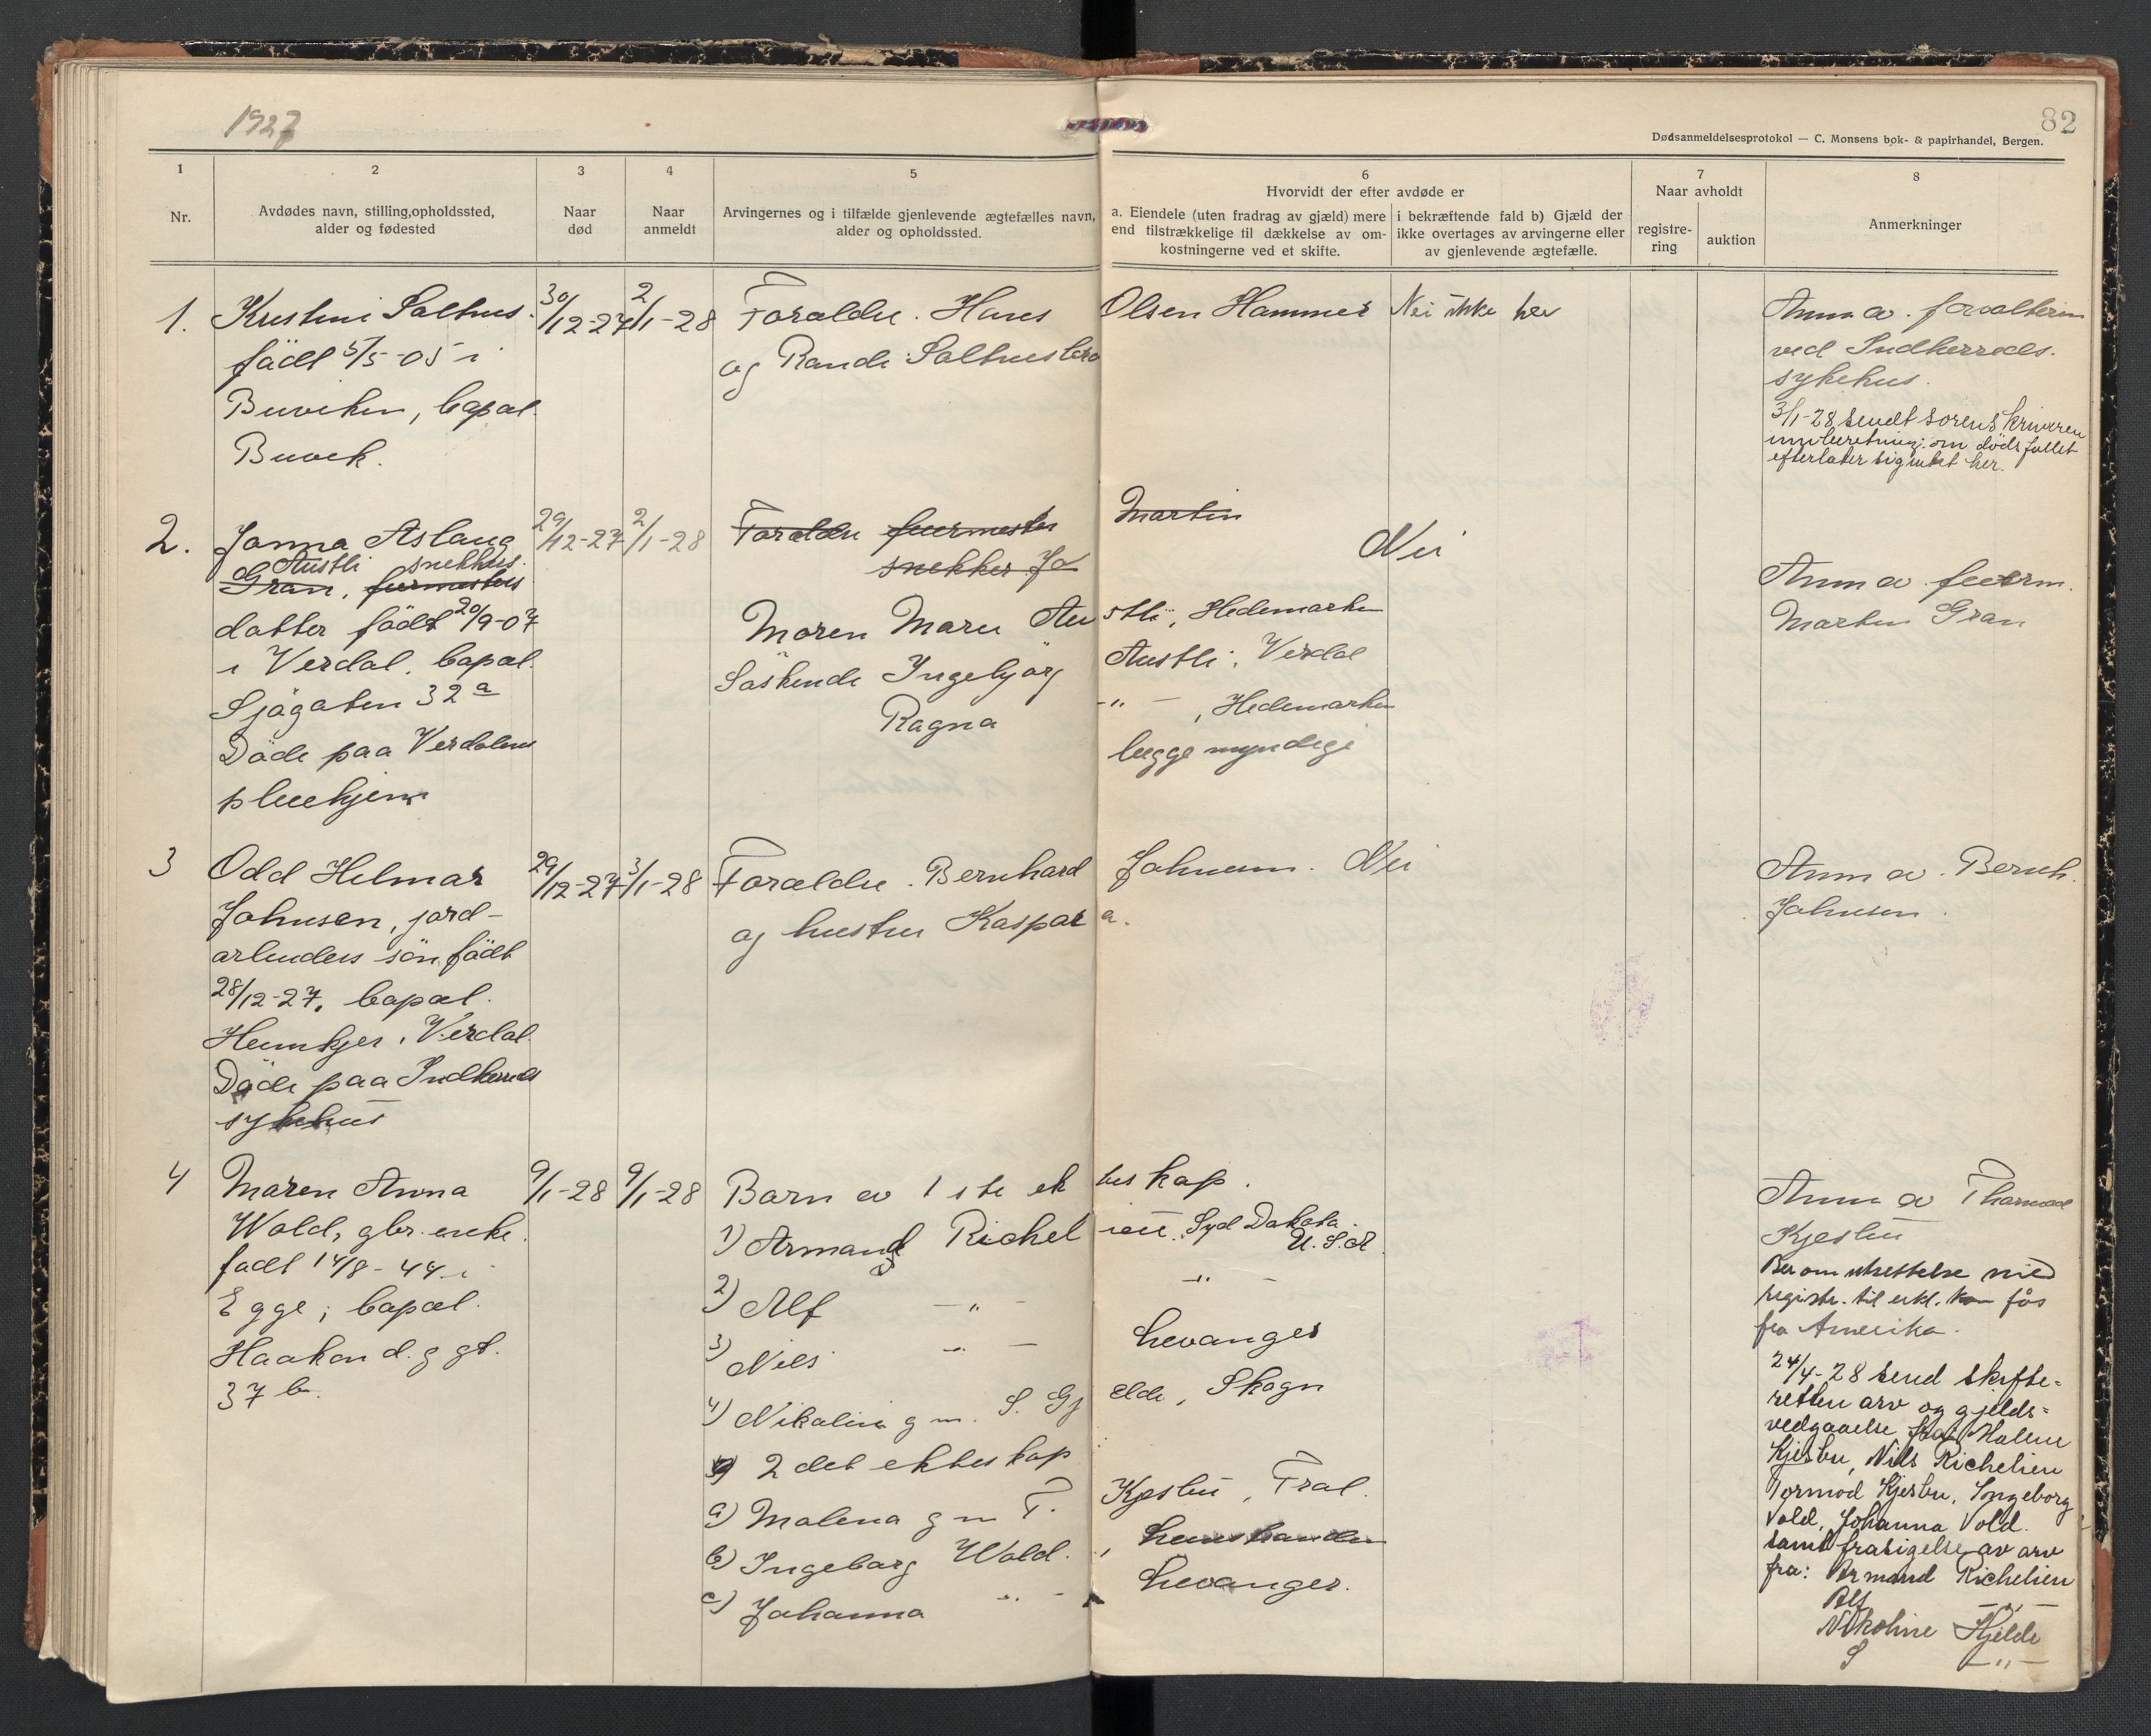 1927
82
Dødsanmeldelsesprotokol — C. Monsens bok- & papirhandel, Bergen.
1
Nr.
2
Avdødes navn, stilling, opholdssted,
alder og fødested
3
Naar
død
4
Naar
anmeldt
5
Arvingernes og i tilfælde gjenlevende ægtefælles navn,
alder og opholdssted.
6
Hvorvidt der efter avdøde er
a. Eiendele (uten fradrag av gjæld) mere
end tilstrækkelige til dækkelse av om-
kostningerne ved et skifte.
i bekræftende fald b) Gjæld der
ikke overtages av arvingerne eller
av gjenlevende ægtefælle.
7
Naar avholdt
registre-
ring
auktion
8
Anmerkninger
1. Kristine Salthus
født 5/5-05 i
Buviken, bopæl
Buvik.
30/12-27
2/1-28
Forældre. Hans Olsen Hammer
og Randi Salthus
Nei ikke her
Anm av. forvalteren
ved Indherreds.
sykehus.
3/1-28 sendt sorenskriveren
innberetning om dødsfallet
efterlater sig intet her.
2. Janna Aslaug
Austli snekkers
Gran, feiermesters
datter født 20/9-07
i Verdal. bopæl
Sjøgaten 32a
Døde paa Verdalens
pleiehjem
29/12-27
2/1-28
Forældre feiermester Martin
snekker Jo
Maren Marie Austli, Hedemarken
Søskende Ingebjørg Austli, Verdal
Ragna -"- , Hedemarken
begge myndige
Nei
Anm av feierm.
Martin Gran
3 Odd Helmar
Johnsen, jord-
arbeiders søn, født
28/12-27. bopæl.
Heimkjer, Verdal
Døde paa Indherreds
sykehus
29/12-27
3/1-28
Forældre. Bernhard Johnsen.
og hustru Kaspara.
Nei
Anm av. Bernh.
Johnsen.
4 Maren Anna
Wold, gbr. enke.
født 14/8-44 i
Egge, bopæl.
Haakon d. g gt.
37 b.
9/1-28
9/1-28
Barn av 1ste ekteskap.
1) Armand Richelieu. Syd Dakota.
U.S.A.
2) Alf -"- -"-
3) Nils -"- Levanger
4) Nikoline g m. S. Gjelde, Skogn
2det ekteskap
a) Malena g m T. Kjesbu, Frol.
b) Ingeborg Wold.
c) Johanna -"- Levanger.
Anm av Thormod
Kjesbu
Ber om utsettelse med
registr. til erkl. kan fås
fra Amerika.
24/4-28 send skifte-
retten arv og gjelds-
vedgaaelse fra Malene
Kjesbu, Nils Richelieu
Tormod Kjesbu, Ingeborg
Vold, Johanna Vold.
samt frasigelse av arv
fra: Armand Richelieu
Alf -"-
Nikoline Hjelde
S -"-